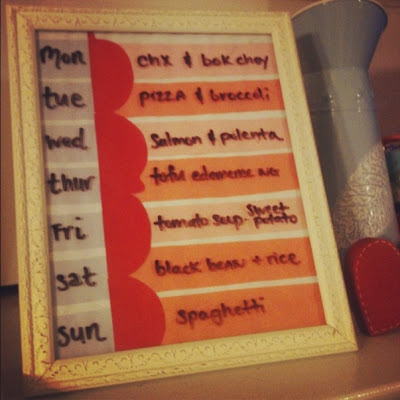 mon chx & bok choy
tue PIZZA & broccoli
wed Salmon & polenta
thur tofu edamame
Fri tomato soup - sweet potato
sat black beans + rice
sun spaghetti